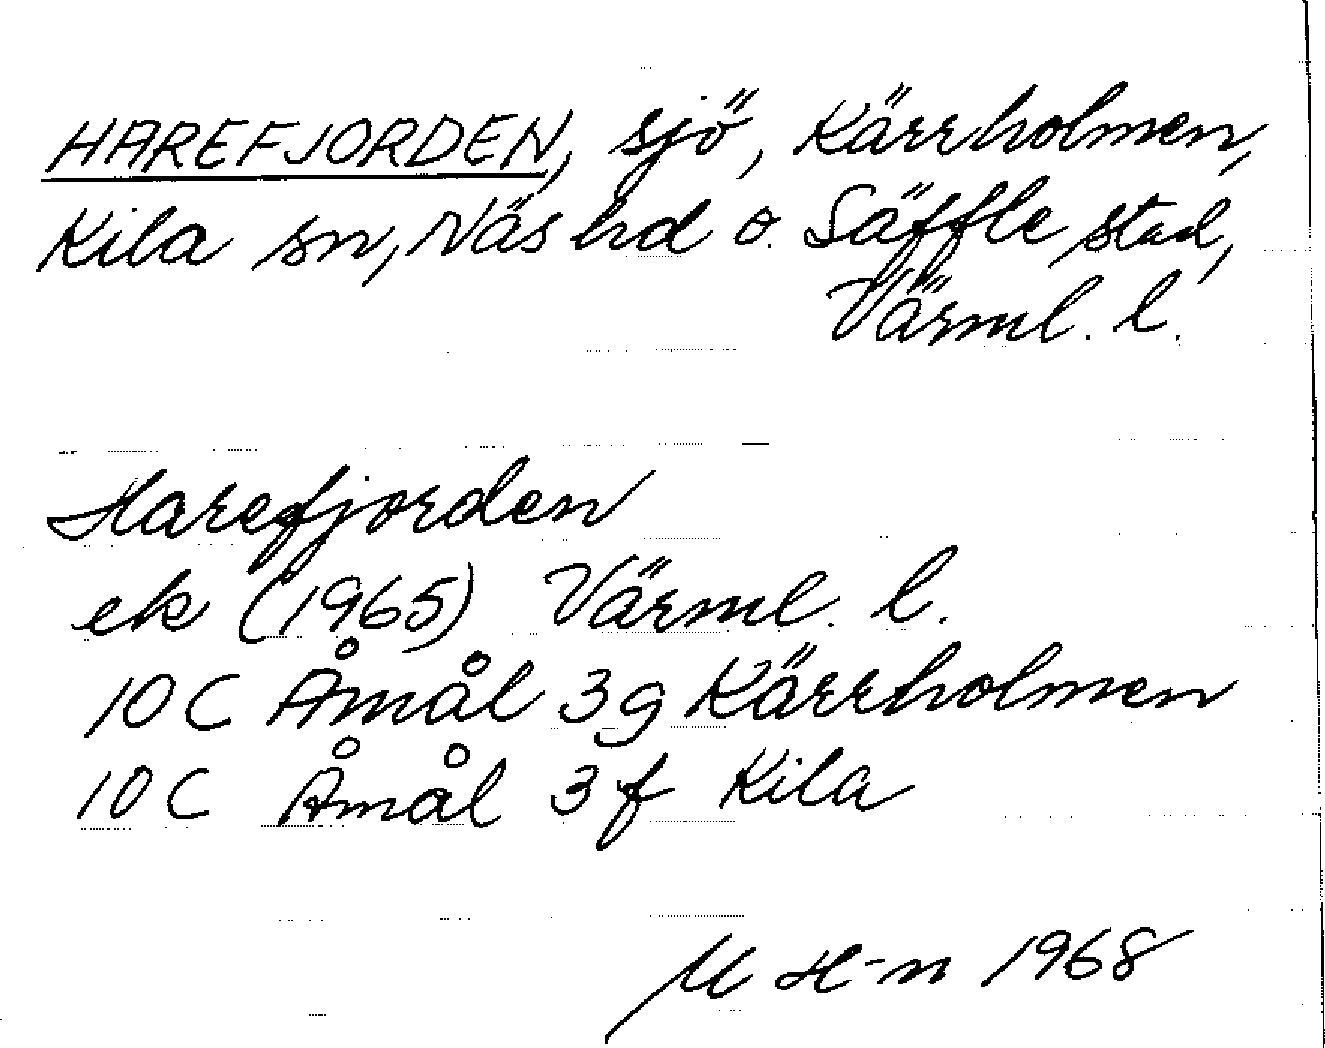 HAREFJORDEN, sjö, Kärrholmen,
Kila sn, Näs hd o. Säffle stad,
Värml. l.
Harefjorden
ek (1965) Värml. l.
10 C Åmål 3g Kärrholmen
10 C Åmål 3f Kila
M H-n 1968